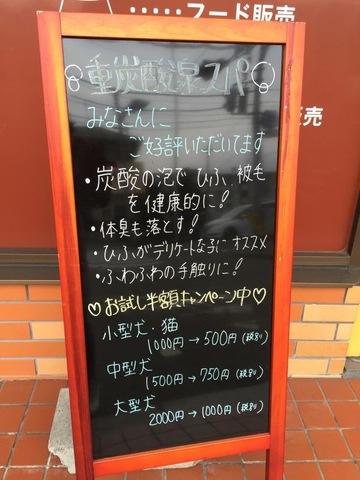 ・・・・・フード販売
販売
重炭酸泉スパ
みなさんに
ご好評いただいてます
・炭酸の泡で ひふ、被毛
を健康的に!
・体臭も落とす!
・ひふがデリケートな子に オススメ
・ふわふわの手触りに!
♡お試し半額キャンペーン中♡
小型犬・猫
1000円→500円(税別)
中型犬
1500円→750円(税別)
大型犬
2000円→1000円(税別)